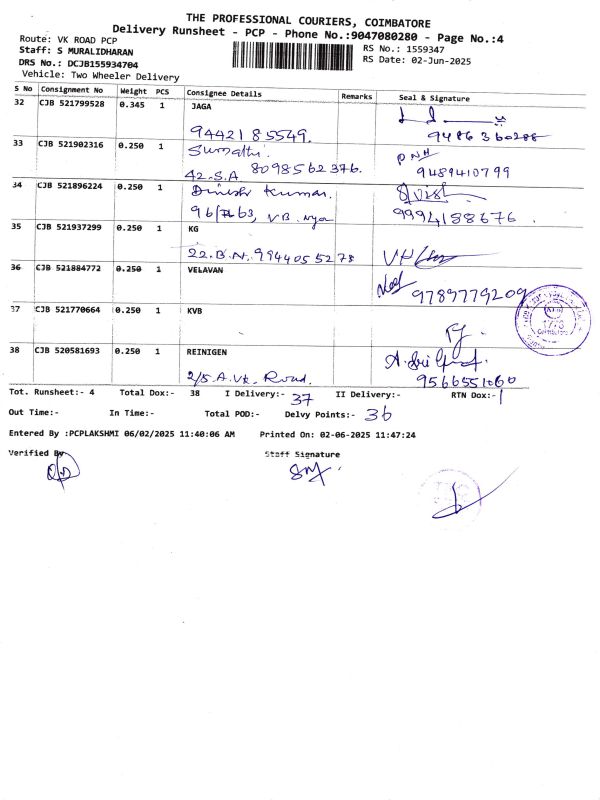 THE PROFESSIONAL COURIERS, COIMBATORE
Delivery Runsheet - PCP - Phone No.:9047080280 - Page No.:4
Route: VK ROAD PCP
RS No.: 1559347
Staff: S MURALIDHARAN
RS Date: 02-Jun-2025
DRS No.: DCJB155934704
Vehicle: Two Wheeler Delivery
S No Consignment No Weight PCS Consignee Details Remarks Seal & Signature
32 CJB 521799528 0.345 1 JAGA
94421 85549. 9486360288
33 CJB 521902316 0.250 1 Sumathi. PNH
42.S.A 8098562376. 9489410799
34 CJB 521896224 0.250 1 Dinesh Kumar.
VB. Nga 9994188676.
35 CJB 521937299 0.250 1 KG
22.B.N. 9944055278
36 CJB 521884772 0.250 1 VELAVAN
9789779209
37 CJB 521770664 0.250 1 KVB
38 CJB 520581693 0.250 1 REINIGEN
2/5 A.Vk. Road. 9566551060
Tot. Runsheet:- 4 Total Dox:- 38 I Delivery:- 37 II Delivery:- RTN Dox:- 1
Out Time:- In Time:- Total POD:- Delvy Points:- 36
Entered By :PCPLAKSHMI 06/02/2025 11:40:06 AM Printed On: 02-06-2025 11:47:24
Verified By Staff Signature